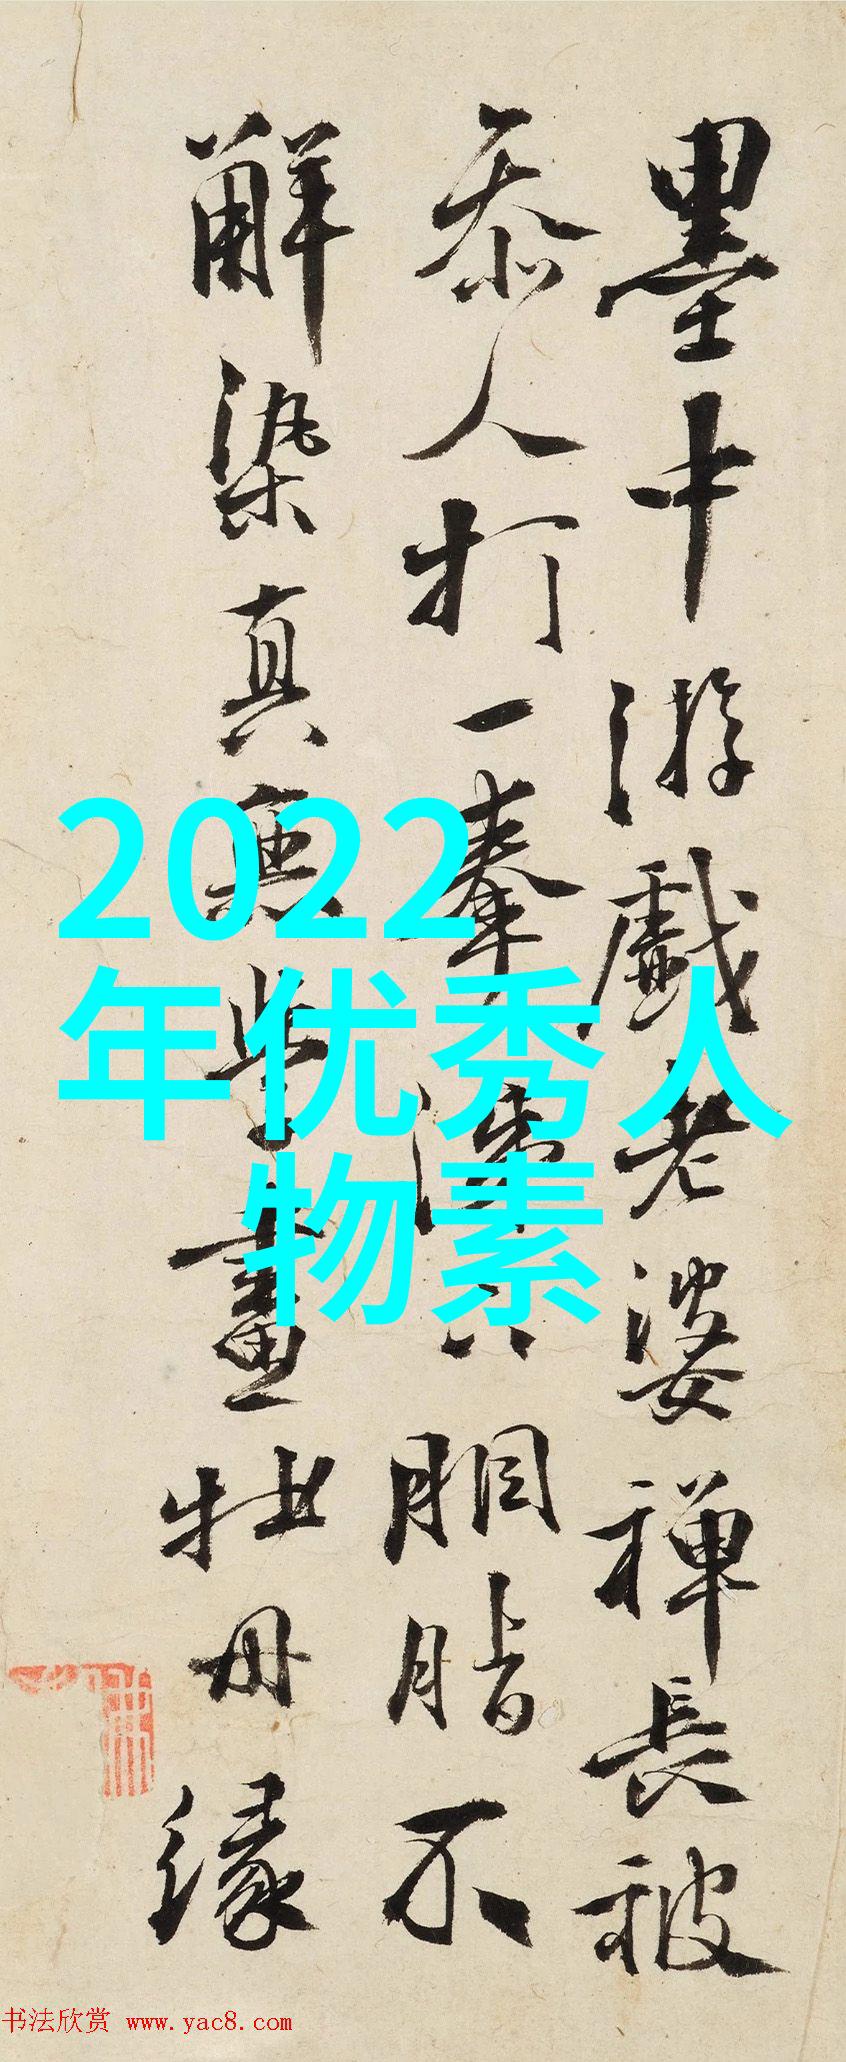 墨中游戲老婆禪長被
忝人打一拳胭脂不
解染真無學畫牡丹緣
2022
年优秀人
物素
书法欣赏 www.yac8.com